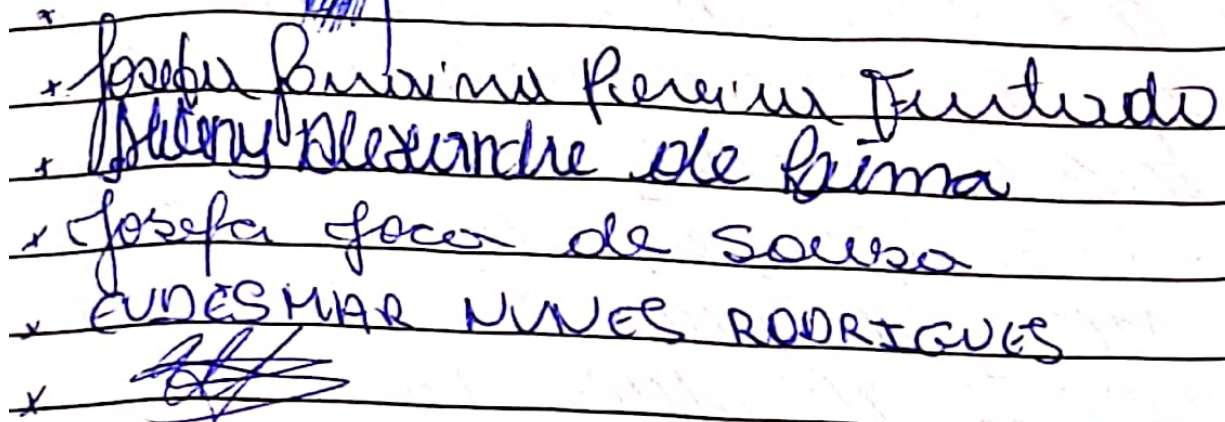 Josefa Pereira Furtado
Alexandre de Lima
Josefa Joca de Sousa
EUDESMAR NUNES RODRIGUES